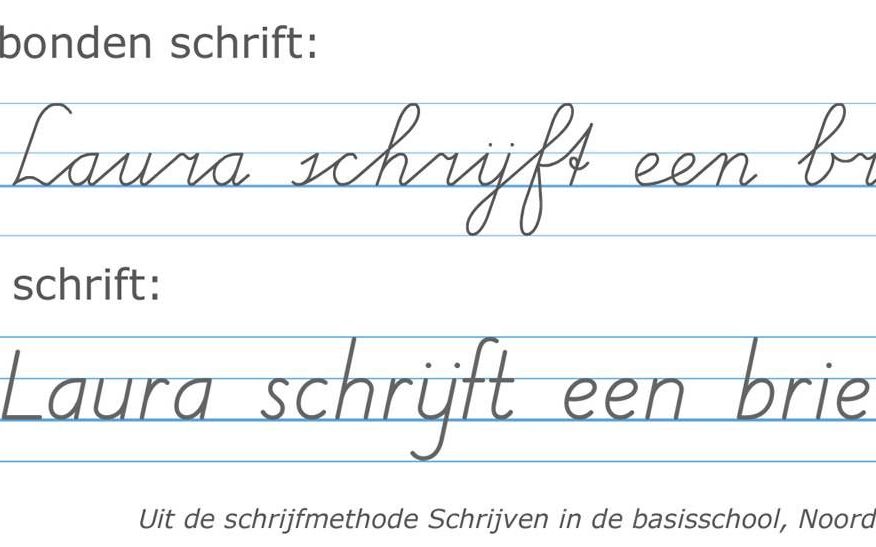 bonden schrift:
Laura schrijft een br
schrift:
Laura schrijft een brie
Uit de schrijfmethode Schrijven in de basisschool, Noord